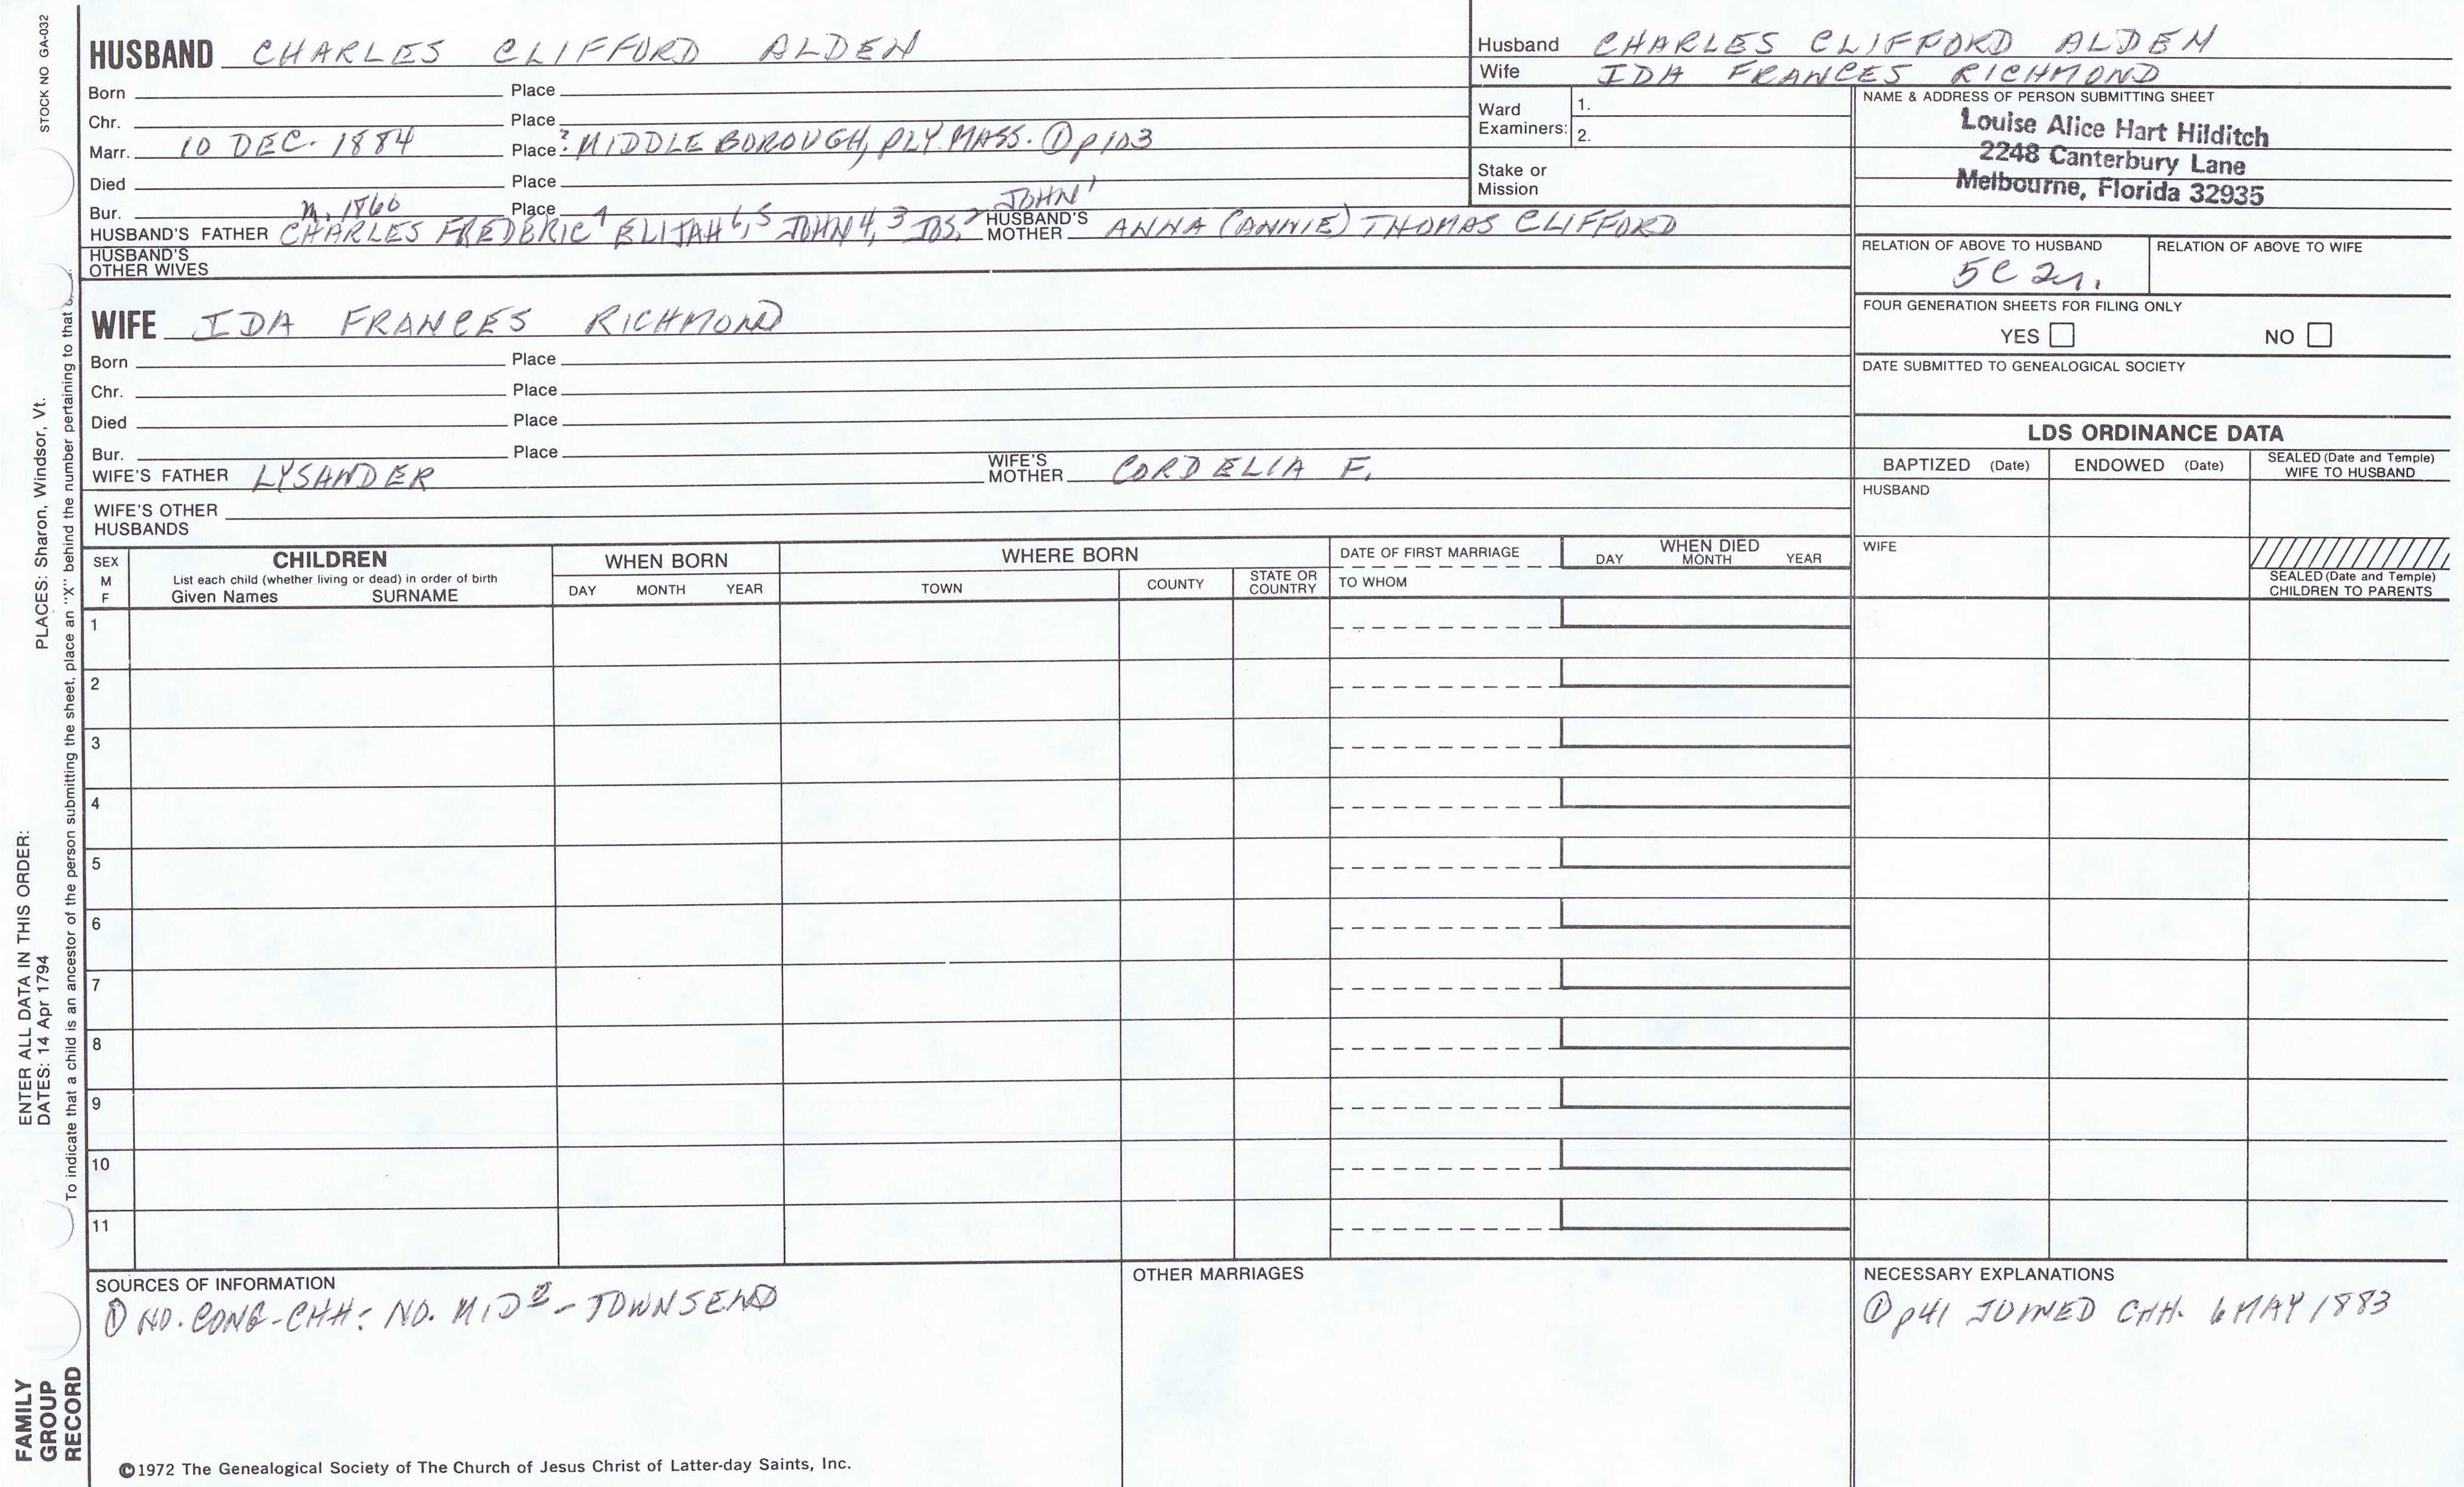 STOCK NO GA-032
HUSBAND CHARLES CLIFFORD ALDEN
Born Place
Chr. Place
Marr. 10 DEC. 1884 Place ? MIDDLEBOROUGH, PLY. MASS. ① p103
Died Place
Bur. Place
m. 1860 JOHN 1
HUSBAND'S FATHER CHARLES FREDERIC ELIJAH 6,5 JOHN 4,3 JOS.2 HUSBAND'S MOTHER ANNA (ANNIE) THOMAS CLIFFORD
HUSBAND'S OTHER WIVES
WIFE IDA FRANCES RICHMOND
Born Place
Chr. Place
Died Place
Bur. Place
WIFE'S FATHER LYSANDER WIFE'S MOTHER CORDELIA F.
WIFE'S OTHER HUSBANDS
Husband CHARLES CLIFFORD ALDEN
Wife IDA FRANCES RICHMOND
Ward Examiners: 1.
2.
Stake or Mission
NAME & ADDRESS OF PERSON SUBMITTING SHEET
Louise Alice Hart Hilditch
2248 Canterbury Lane
Melbourne, Florida 32935
RELATION OF ABOVE TO HUSBAND RELATION OF ABOVE TO WIFE
5C 2r.
FOUR GENERATION SHEETS FOR FILING ONLY
YES NO
DATE SUBMITTED TO GENEALOGICAL SOCIETY
LDS ORDINANCE DATA
BAPTIZED (Date) ENDOWED (Date) SEALED (Date and Temple) WIFE TO HUSBAND
HUSBAND
WIFE
SEALED (Date and Temple) CHILDREN TO PARENTS
SEX M F
CHILDREN
List each child (whether living or dead) in order of birth
Given Names SURNAME
WHEN BORN
DAY MONTH YEAR
WHERE BORN
TOWN COUNTY STATE OR COUNTRY
DATE OF FIRST MARRIAGE
TO WHOM
WHEN DIED
DAY MONTH YEAR
1
2
3
4
5
6
7
8
9
10
11
SOURCES OF INFORMATION
① NO. CONG-CHH: NO. MID - TOWNSEND
OTHER MARRIAGES
NECESSARY EXPLANATIONS
① p41 JOINED CHH. 6 MAY 1883
©1972 The Genealogical Society of The Church of Jesus Christ of Latter-day Saints, Inc.
FAMILY GROUP RECORD
ENTER ALL DATA IN THIS ORDER:
DATES: 14 Apr 1794 PLACES: Sharon, Windsor, Vt.
To indicate that a child is an ancestor of the person submitting the sheet, place an "X" behind the number pertaining to that